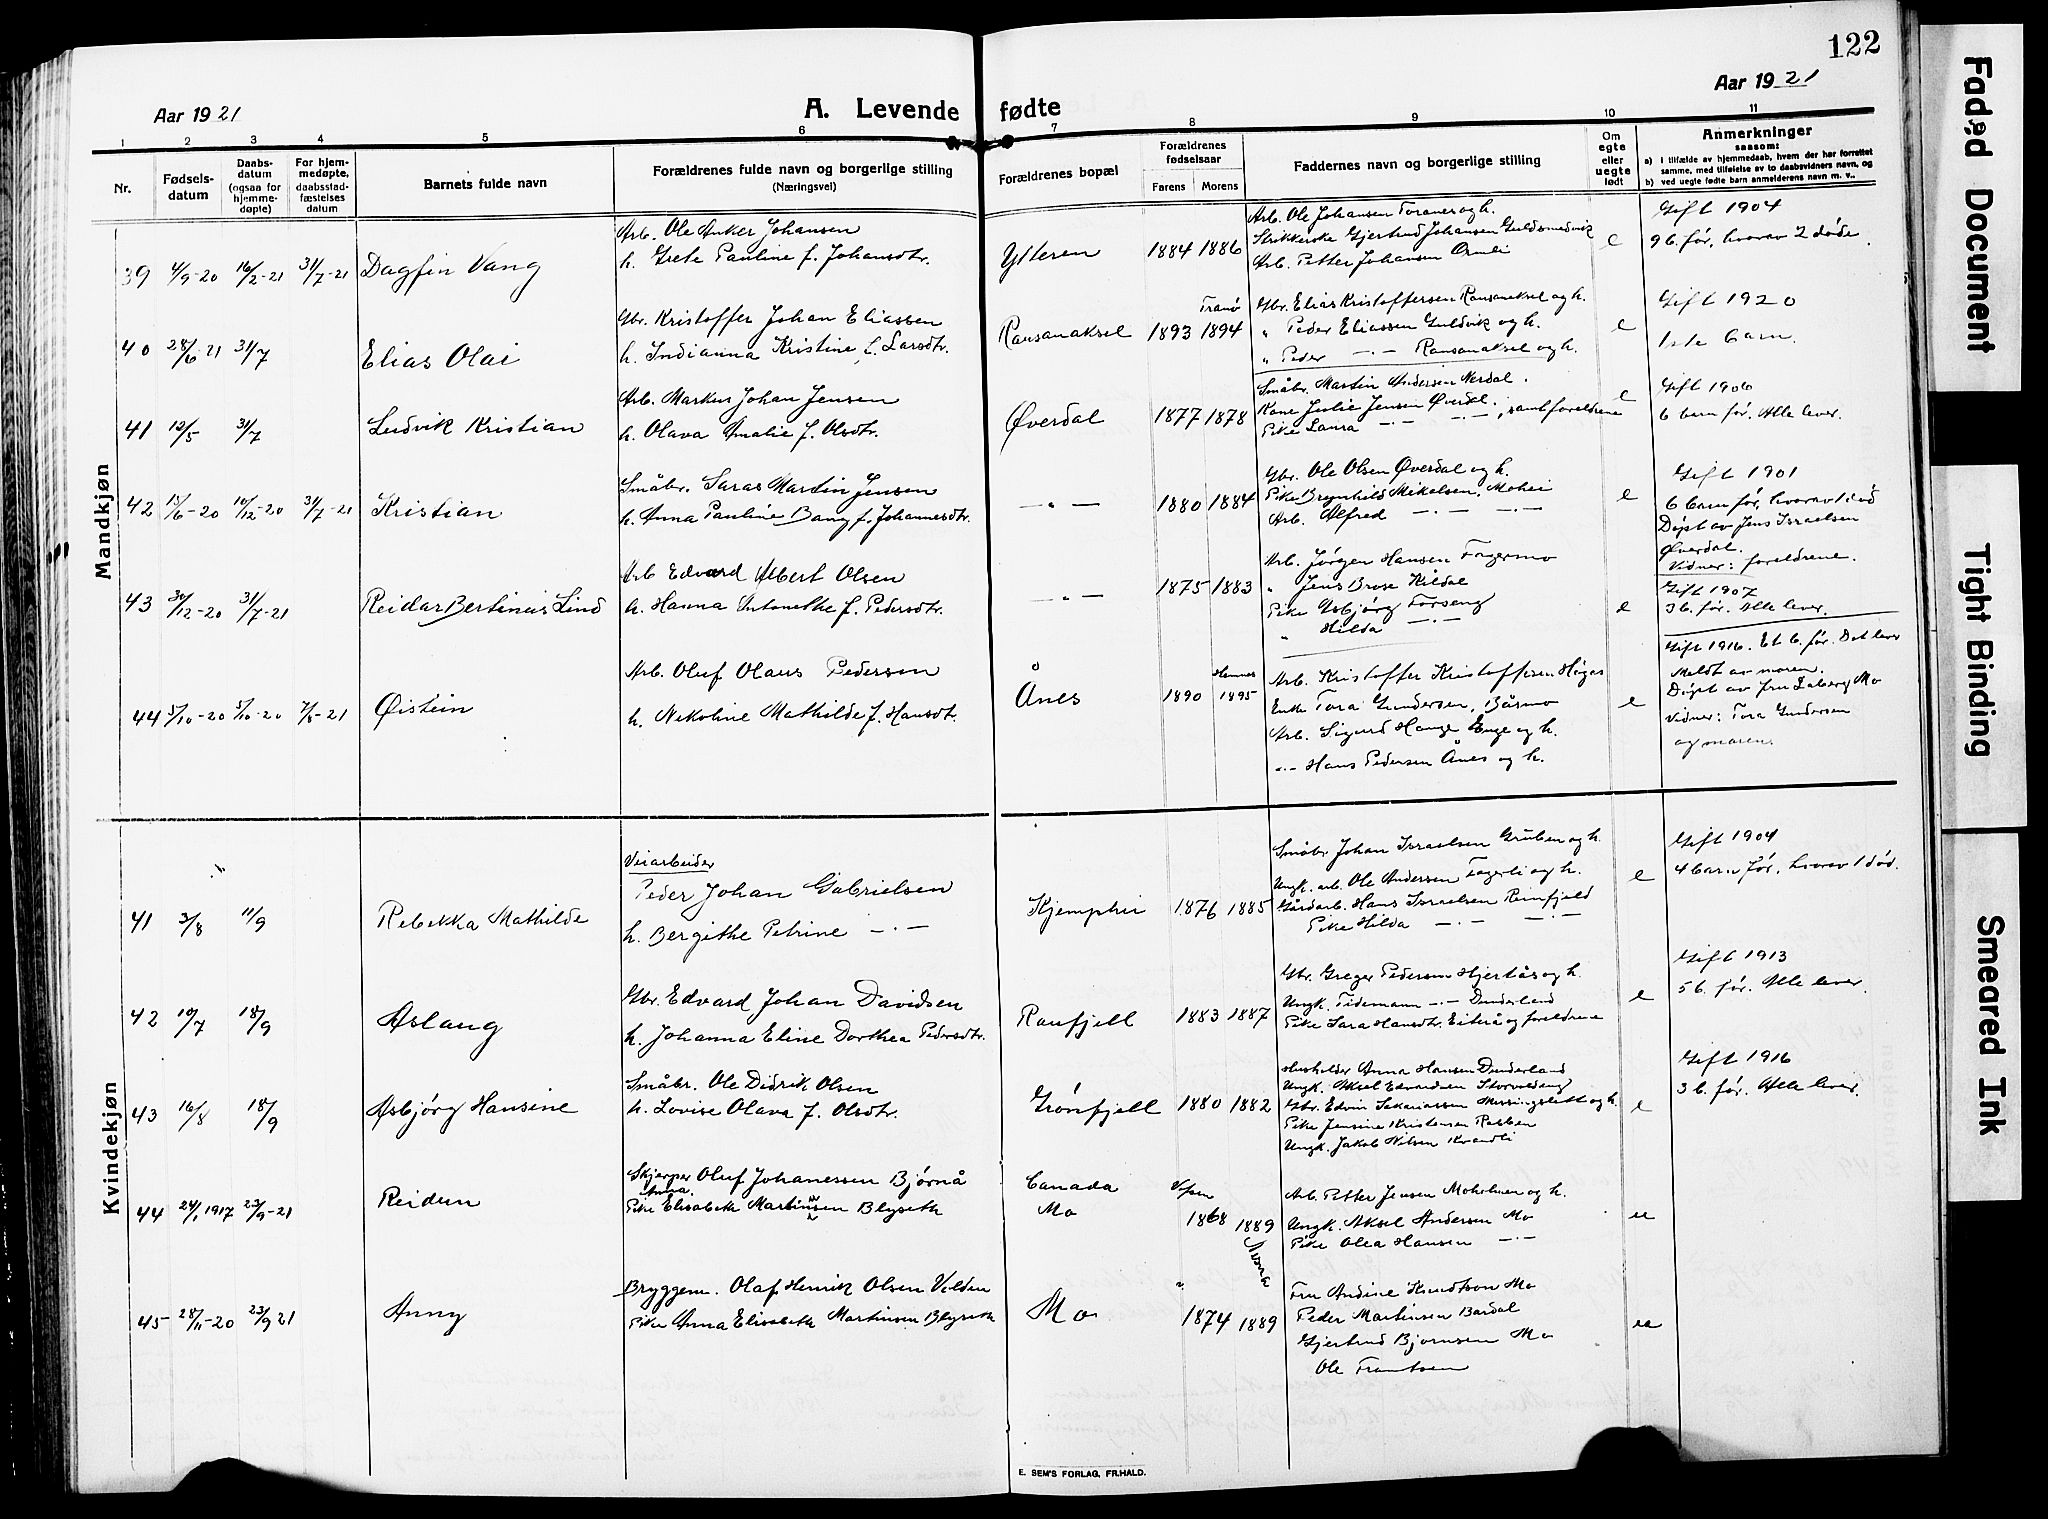 122
Aar 1921
A. Levende fødte
Aar 1921
1 2 3 4 5 6 7 8 9 10 11
Nr.
Fødsels-
datum
Daabs-
datum
(ogsaa for
hjemme-
døpte)
For hjem-
medøpte,
daabsstad-
fæstelses
datum
Barnets fulde navn
Forældrenes fulde navn og borgerlige stilling
(Næringsvei)
Forældrenes bopæl
Forældrenes
fødselsaar
Farens Morens
Faddernes navn og borgerlige stilling
Om
egte
eller
uegte
født
Anmerkninger
saasom:
a) i tilfælde av hjemmedaab, hvem der har forrettet
samme, med tilføielse av to daabsvidners navn, og
b) ved uegte fødte barn anmelderens navn m. v..
Mandkjøn
39 4/9-20 16/2-21 31/7-21 Dagfin Vang
Arb. Ole Anker Johansen
h. Grete Pauline f. Johansdtr.
Ytteren 1884 1886
Arb. Ole Johansen Toranes og h.
Strikkerske Gjertrud Johansen Guldsmedvik
Arb. Petter Johansen Ormli
e
Gift 1904
9 b. før, hvorav 2 døde.
40 28/6-21 31/7 Elias Olai
Gbr. Kristoffer Johan Eliassen
h. Indianna Kristine f. Larsdtr.
Ransanaksel 1893 Tranø 1894
Gbr. Elias Kristoffersen Ransanaksel og h.
" Peder Eliassen Guldvik og h.
" Peder -"- Ransanaksel og h.
e
Gift 1920
1ste barn.
41 12/5 31/7 Ludvik Kristian
Arb. Markus Johan Jensen
h. Olava Amalie f. Olsdtr.
Øverdal 1877 1878
Småbr. Martin Andersen Nerdal.
Kone Julie Jensen Øverdal.
Pike Laura -"- -"-, samt foreldrene
e
Gift 1906
6 barn før. Alle lever.
42 15/6-20 10/12-20 31/7-21 Kristian
Småbr. Saras Martin Jensen
h. Anna Pauline Bang f. Johannesdtr.
-"- 1880 1884
Gbr. Ole Olsen Øverdal og h.
Pike Brynhild Mikelsen, Mohei
Arb. Alfred -"- -"-
e
Gift 1901
6 barn før, hvorav 1 død
Døpt av Jens Israelsen
Øverdal.
Vidner: foreldrene.
43 30/12-20 31/7-21 Reidar Bertinius Lind
Arb Edvard Albert Olsen
h. Hanna Antonethe f. Pedersdtr.
-"- 1875 1883
Arb. Jørgen Hansen Fagermo
" Jens Brose Kildal
Pike Asbjørg Forseng
" Hilda -"-
e
Gift 1907
3 b. før. Alle lever.
44 5/10-20 5/10-20 7/8-21 Øistein
Arb. Oluf Olaus Pedersen
h. Nikoline Mathilde f. Hansdtr.
Ånes 1890 Hemnes 1895
Arb. Kristoffer Kristoffersen Høgås
Enke Tora Gundersen, Båsmo
Arb. Sigurd Hauge Enge og h.
-"- Hans Pedersen Ånes og h.
e
Gift 1916. Et b. før. Det lever
Meldt av moren.
Døpt av fru Laberg Mo
Vidner: Tora Gundersen
og moren.
Kvindekjøn
41 3/8 11/9 Rebekka Mathilde
Veiarbeider
Peder Johan Gabrielsen
h. Bergithe Petrine -"-
Kjemphei 1876 1885
Småbr. Johan Israelsen Gruben og h.
Ungk. arb. Ole Andersen Fagerli og h.
Gårdarb. Hans Israelsen Reinfjeld
Pike Hilda -"- -"-
e
Gift 1904
4 barn før, hvorav 1 død.
42 10/7 18/9 Aslaug
Gbr. Edvard Johan Davidsen
h. Johanna Eline Dorthea Pedersdtr.
Raufjell 1883 1887
Gbr. Greger Pedersen Hjertås og h.
Ungk. Tidemann -"- Dunderland
Pike Sara Hansdtr. Eiterå og foreldrene
e
Gift 1913
5 b. før. Alle lever.
43 16/8 18/9 Asbjørg Hansine
Småbr. Ole Didrik Olsen
h. Lovise Olava f. Olsdtr.
Grønfjell 1880 1882
Husholder Anna Hansen Dunderland
Ungk. Aksel Edvardsen Storvoldeng
Gbr. Edvin Sakariassen Messingslett og h.
Pike Jensine Kristensen
Ungk. Jakob Nilsen
e
Gift 1916
3 b. før. Alle lever.
44 24/1 1917 23/9-21 Reidun
Skjerper Oluf Johanessen Bjørnå
Anna
Pike Elisabeth Martinsen Blyseth
Canada
Mo
1868 1889
Arb. Petter Jensen Moholmen og h.
Ungk. Aksel Andersen Mo
Pike Olea Hansen -"-
ue
45 28/11-20 23/9 21 Anny
Bryggem. Olaf Henrik Olsen Volden
Pike Anna Elisabeth Martinsen Blyseth
Mo " 1874 1889
Fru Andine Knudtson Mo
Peder Martinsen Bardal
Gjertrud Bjørnsen Mo
Ole Frantsen
ue
E. SEM'S FORLAG, FR.HALD.
Faded Document
Tight Binding
Smeared Ink